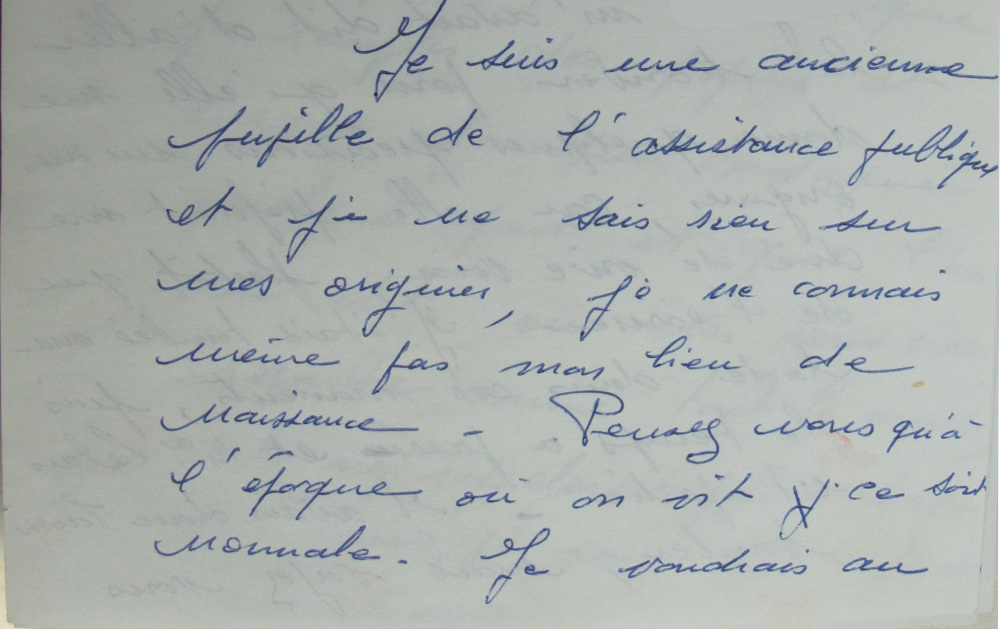 Je suis une ancienne
pupille de l'assistance publique
et je ne sais rien sur
mes origines, je ne connais
même pas mon lieu de
naissance - Pensez vous qu'à
l'époque où on vit ce soit
normale. Je voudrais au